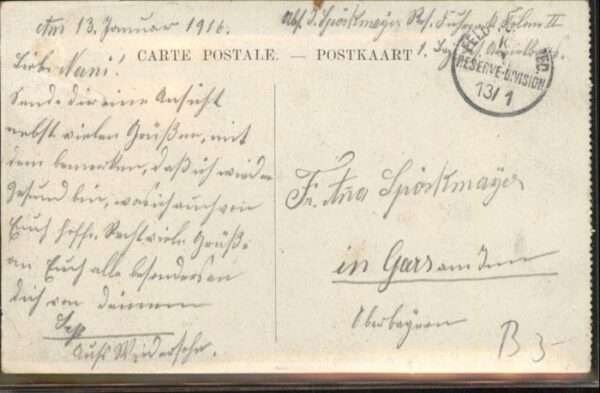 Am 13. Januar 1916.
Abs. S. Spöckmayer Res. Fuhrp. Kolom II
CARTE POSTALE. — POSTKAART
1.
RESERVE-DIVISION
13/1
Liebe Nani!
Sende dir eine Ansicht
nebst vielen Grüßen, mit
dem bemerken, daß ich wieder
Gesund bin, was ich auch von
Euch hoffe. Recht viele Grüße
an Euch alle besonders an
dich von deinem
Sepp
Aufs Wiedersehn.
Fr. Ana Spöckmayer
in Gars am Inn
Oberbayern
B 5